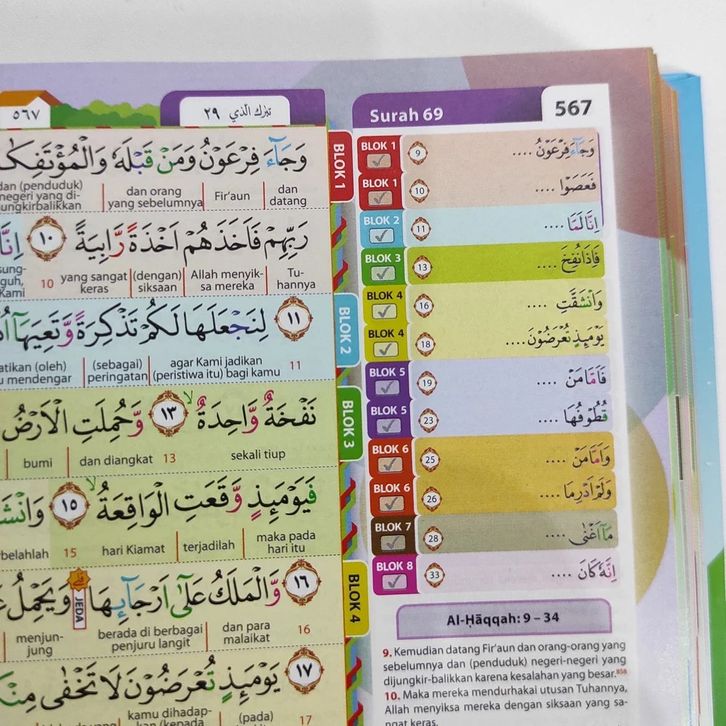 ٥٦٧
تبرك الّذي ٢٩
Surah 69
567
وَجَآءَ فِرْعَوْنُ وَمَنْ قَبْلَهٗ وَالْمُؤْتَفِكٰ
dan (penduduk) negeri yang di-
ungkirbalikkan
dan orang
yang sebelumnya
Fir'aun
dan
datang
رَبِّهِمْ فَاَخَذَهُمْ اَخْذَةً رَّابِيَةً ١٠ اِنَّا
10
yang sangat
keras
(dengan)
siksaan
Allah menyik-
sa mereka
Tu-
hannya
لِنَجْعَلَهَا لَكُمْ تَذْكِرَةً وَّتَعِيَهَآ
١١
(sebagai)
peringatan
agar Kami jadikan
(peristiwa itu) bagi kamu
11
نَفْخَةٌ وَّاحِدَةٌ ١٣ وَّحُمِلَتِ الْاَرْضُ
bumi
dan diangkat
13
sekali tiup
فَيَوْمَىِٕذٍ وَّقَعَتِ الْوَاقِعَةُ ١٥
15
hari Kiamat
terjadilah
maka pada
hari itu
١٦
وَّالْمَلَكُ عَلٰٓى اَرْجَاۤىِٕهَا وَيَحْمِلُ
JEDA
menjun-
jung
berada di berbagai
penjuru langit
dan para
malaikat
16
١٧
يَوْمَىِٕذٍ تُعْرَضُوْنَ لَا تَخْفٰى
kamu dihadap-
(pada)
17
BLOK 1
BLOK 2
BLOK 3
BLOK 4
BLOK 1 9 وَجَآءَ فِرْعَوْنُ ....
BLOK 1 10 فَعَصَوْا ....
BLOK 2 11 اِنَّا لَمَّا ....
BLOK 3 13 فَاِذَا نُفِخَ ....
BLOK 4 16 وَانْشَقَّتِ ....
BLOK 4 18 يَوْمَىِٕذٍ تُعْرَضُوْنَ ....
BLOK 5 19 فَاَمَّا مَنْ ....
BLOK 5 23 قُطُوْفُهَا ....
BLOK 6 25 وَاَمَّا مَنْ ....
BLOK 6 26 وَلَمْ اَدْرِ مَا ....
BLOK 7 28 مَآ اَغْنٰى ....
BLOK 8 33 اِنَّهٗ كَانَ ....
Al-Ḥāqqah: 9 – 34
9. Kemudian datang Fir'aun dan orang-orang yang
sebelumnya dan (penduduk) negeri-negeri yang
dijungkir-balikkan karena kesalahan yang besar.
10. Maka mereka mendurhakai utusan Tuhannya,
Allah menyiksa mereka dengan siksaan yang sa-
ngat keras.